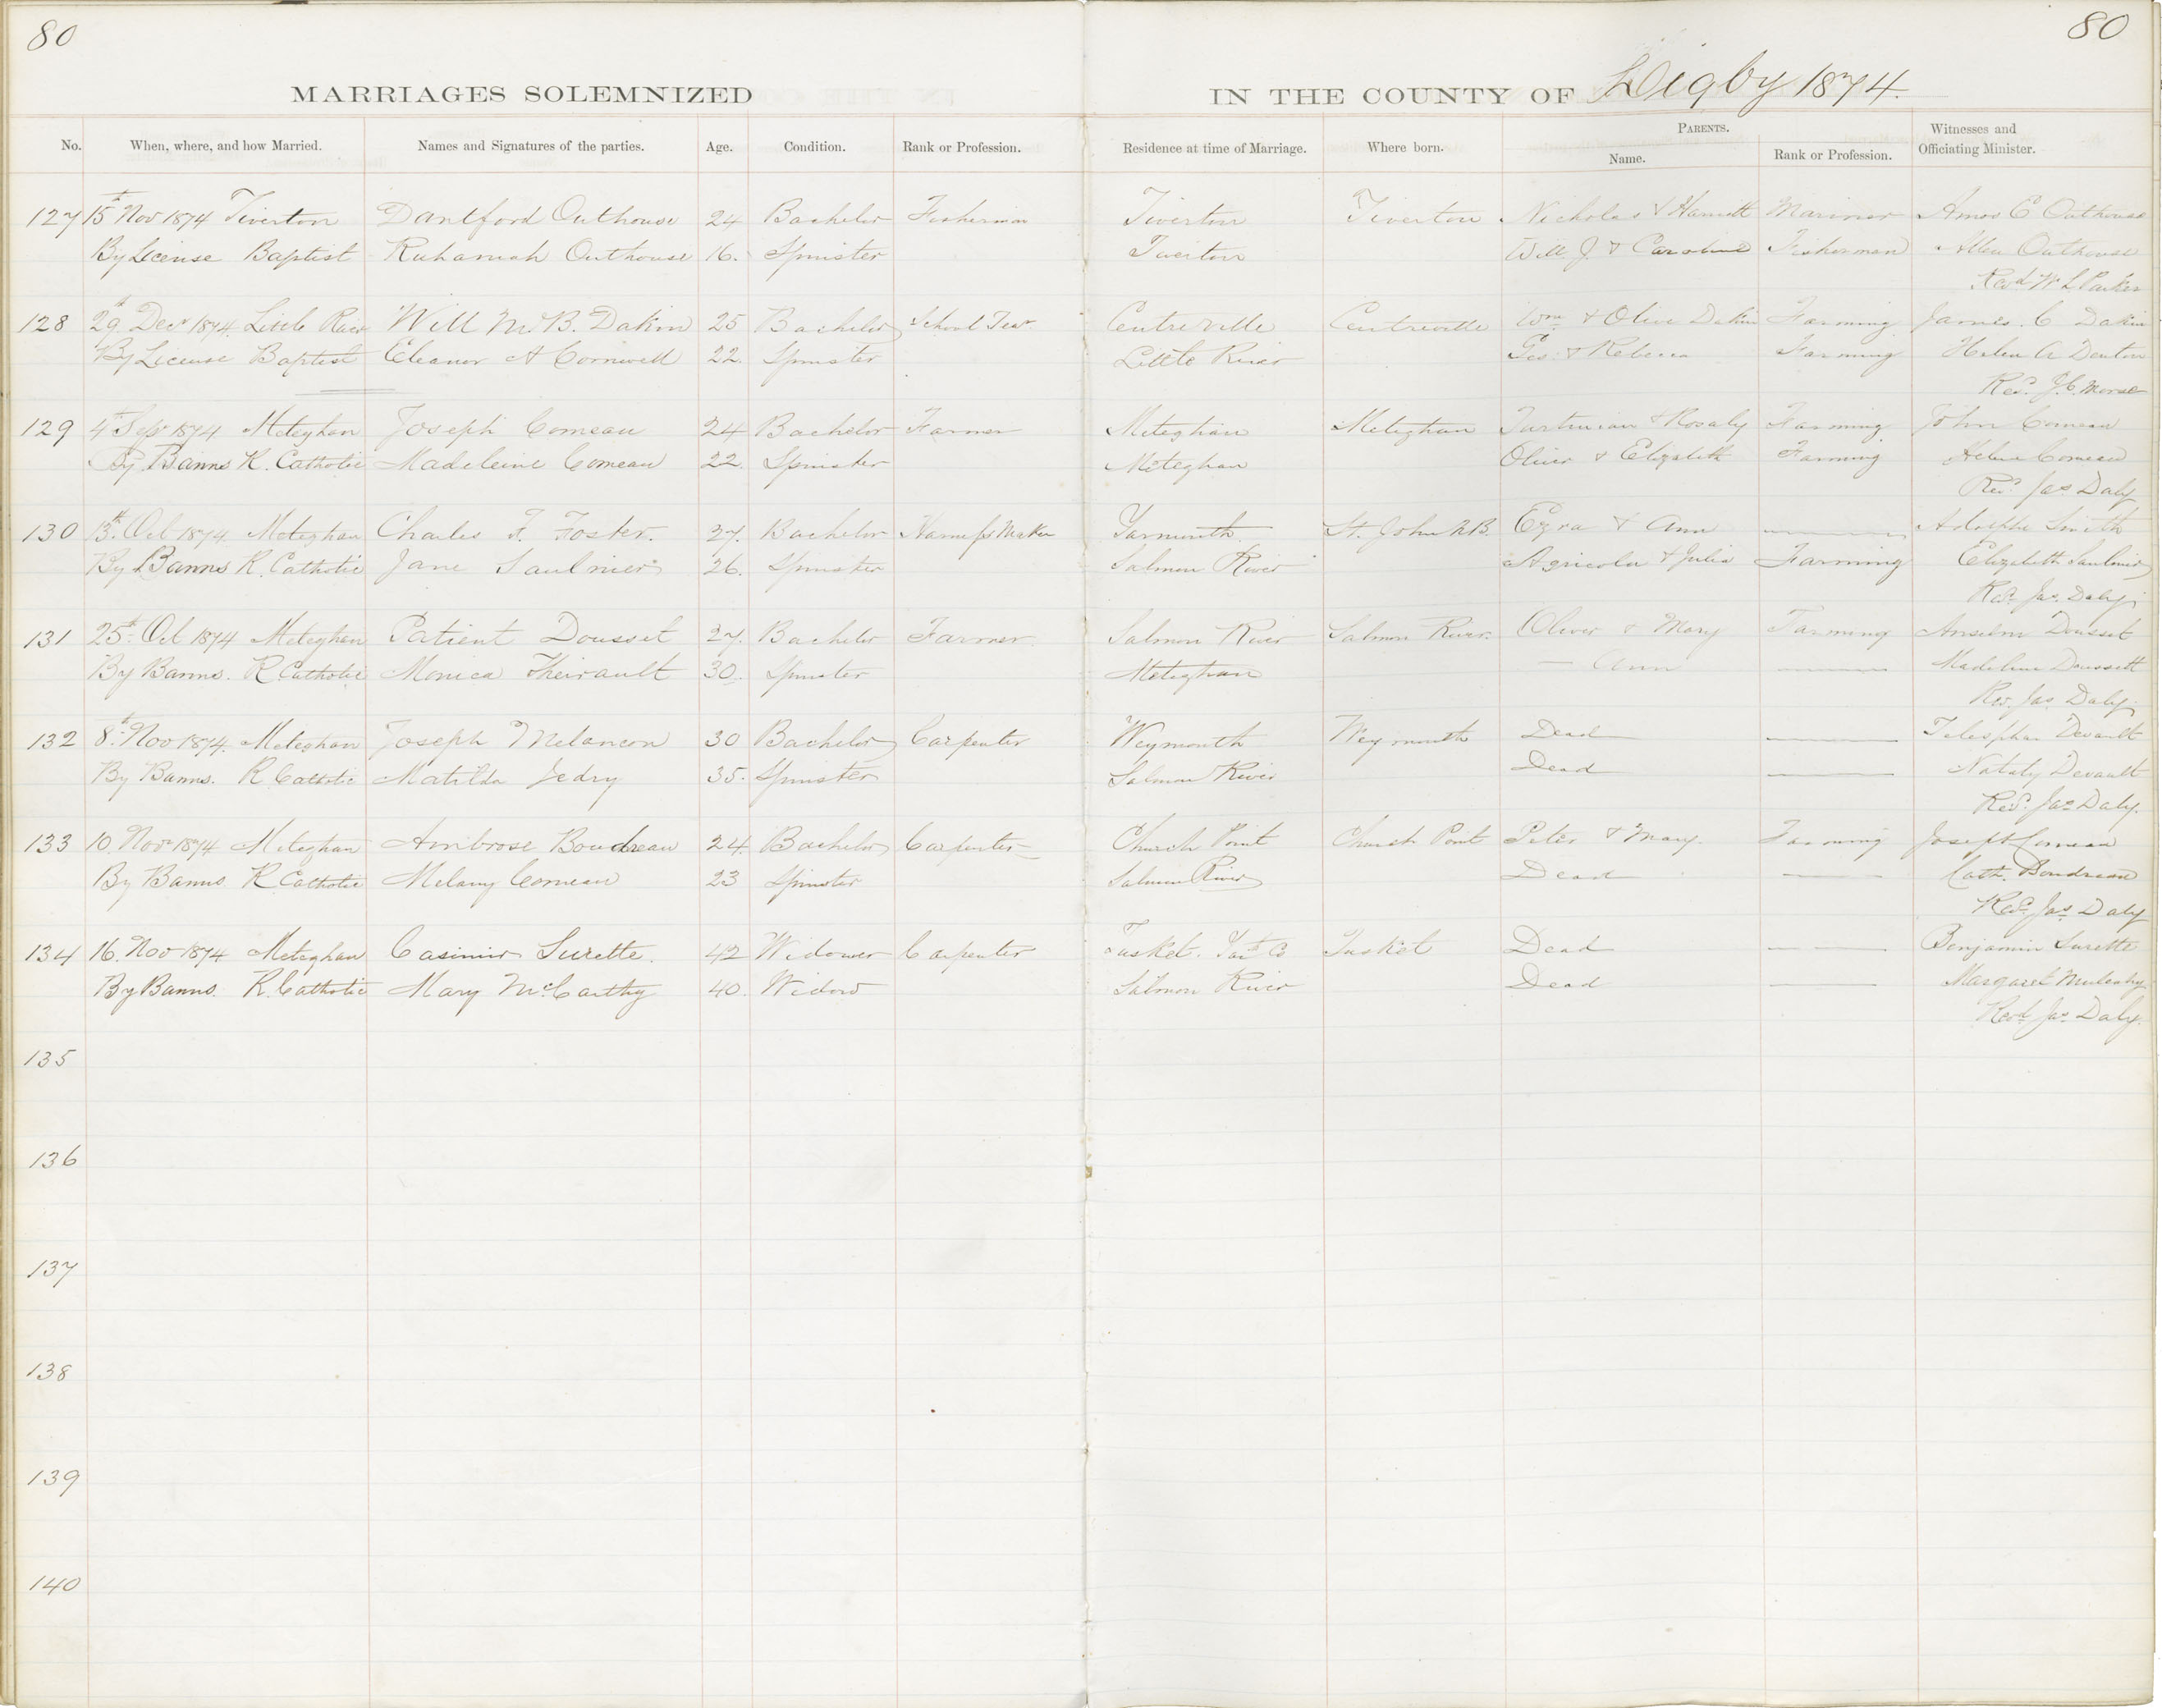 80
80
MARRIAGES SOLEMNIZED
IN THE COUNTY OF Digby 1874.
No. When, where, and how Married. Names and Signatures of the parties. Age. Condition. Rank or Profession. Residence at time of Marriage. Where born. PARENTS. Name. Rank or Profession. Witnesses and Officiating Minister.
127 15th Nov 1874 Tiverton Danlford Outhouse 24 Bachelor Fisherman Tiverton Tiverton Nicholas & Harriett Mariner Amos E Outhouse
By License Baptist Ruhamah Outhouse 16. Spinster Tiverton Will J & Caroline Fisherman Allen Outhouse
Revd W L Parker
128 29th Decr 1874 Little River Will McB. Dakin 25 Bachelor School Tear Centreville Centreville Wm & Olive Dakin Farming James. C Dakin
By License Baptist Eleanor A Cornwell 22. Spinster Little River Geo & Rebecca Farming Helen A Denton
Revd J C Morse
129 4th Sepr 1874 Meteghan Joseph Comeau 24 Bachelor Farmer Meteghan Meteghan & Rosaly Farming John Comeau
By Banns R. Catholic Madeleine Comeau 22. Spinster Meteghan Oliver & Elizabeth Farming Comeau
Revd Jas Daly
130 13th Oct 1874 Meteghan Charles F. Foster. 27. Bachelor Harness Maker Yarmouth. St. John N.B. Ezra & Ann Adolphe Smith
By Banns R. Catholic Jane Saulnier 26. Spinster Salmon River Agricola & Julia Farming Elizabeth Saulnier
Revd Jas. Daly
131 25th Oct 1874 Meteghan Patient Dousset 27. Bachelor Farmer Salmon River Salmon River. Oliver & Mary Farming Anselm Dousset
By Banns. R Catholic Monica Theirault 30. Spinster Meteghan — Ann Madeline Doussett
Rev. Jas Daly
132 8th Nov 1874. Meteghan Joseph Melancon 30 Bachelor Carpenter Weymouth Weymouth Dead Telesphor Devault
By Banns. R Catholic Matilda Jedry 35. Spinster Salmon River Dead Nataly Devault
Revd Jas Daly.
133 10. Novr 1874 Meteghan Ambrose Boudreau 24. Bachelor Carpenter Church Point Church Point Peter & Mary. Farming Joseph Comeau
By Banns R Catholic Melany Comeau 23 Spinster Salmon River Dead Cath. Boudreau
Revd Jas Daly
134 16. Nov 1874 Meteghan Casimir Surette. 42 Widower Carpenter Tusket. Yar Co Tusket Dead Benjamin Surette
By Banns. R. Catholic Mary McCarthy 40. Widow Salmon River Dead Margaret Mulcahy
Revd Jas Daly.
135
136
137
138
139
140